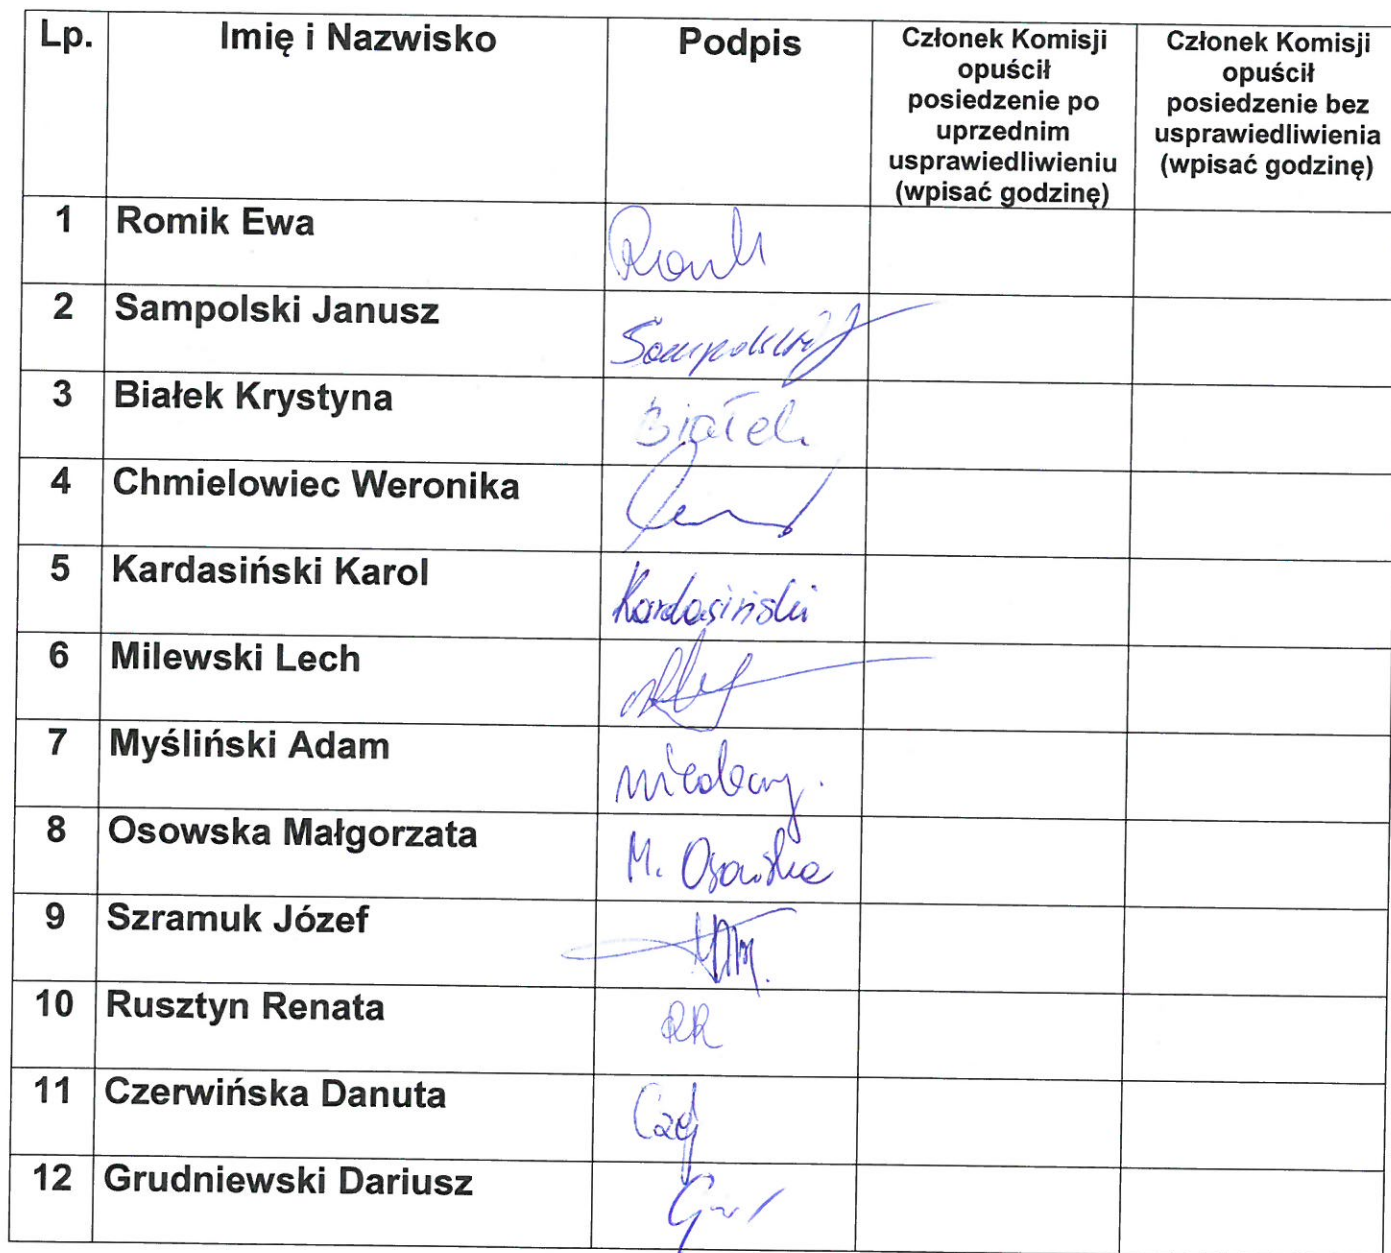 Lp.
Imię i Nazwisko
Podpis
Członek Komisji
opuścił
posiedzenie po
uprzednim
usprawiedliwieniu
(wpisać godzinę)
Członek Komisji
opuścił
posiedzenie bez
usprawiedliwienia
(wpisać godzinę)
1 Romik Ewa
2 Sampolski Janusz Sampolski
3 Białek Krystyna Białek
4 Chmielowiec Weronika
5 Kardasiński Karol Kardasiński
6 Milewski Lech
7 Myśliński Adam
8 Osowska Małgorzata M. Osowska
9 Szramuk Józef
10 Rusztyn Renata RR
11 Czerwińska Danuta
12 Grudniewski Dariusz